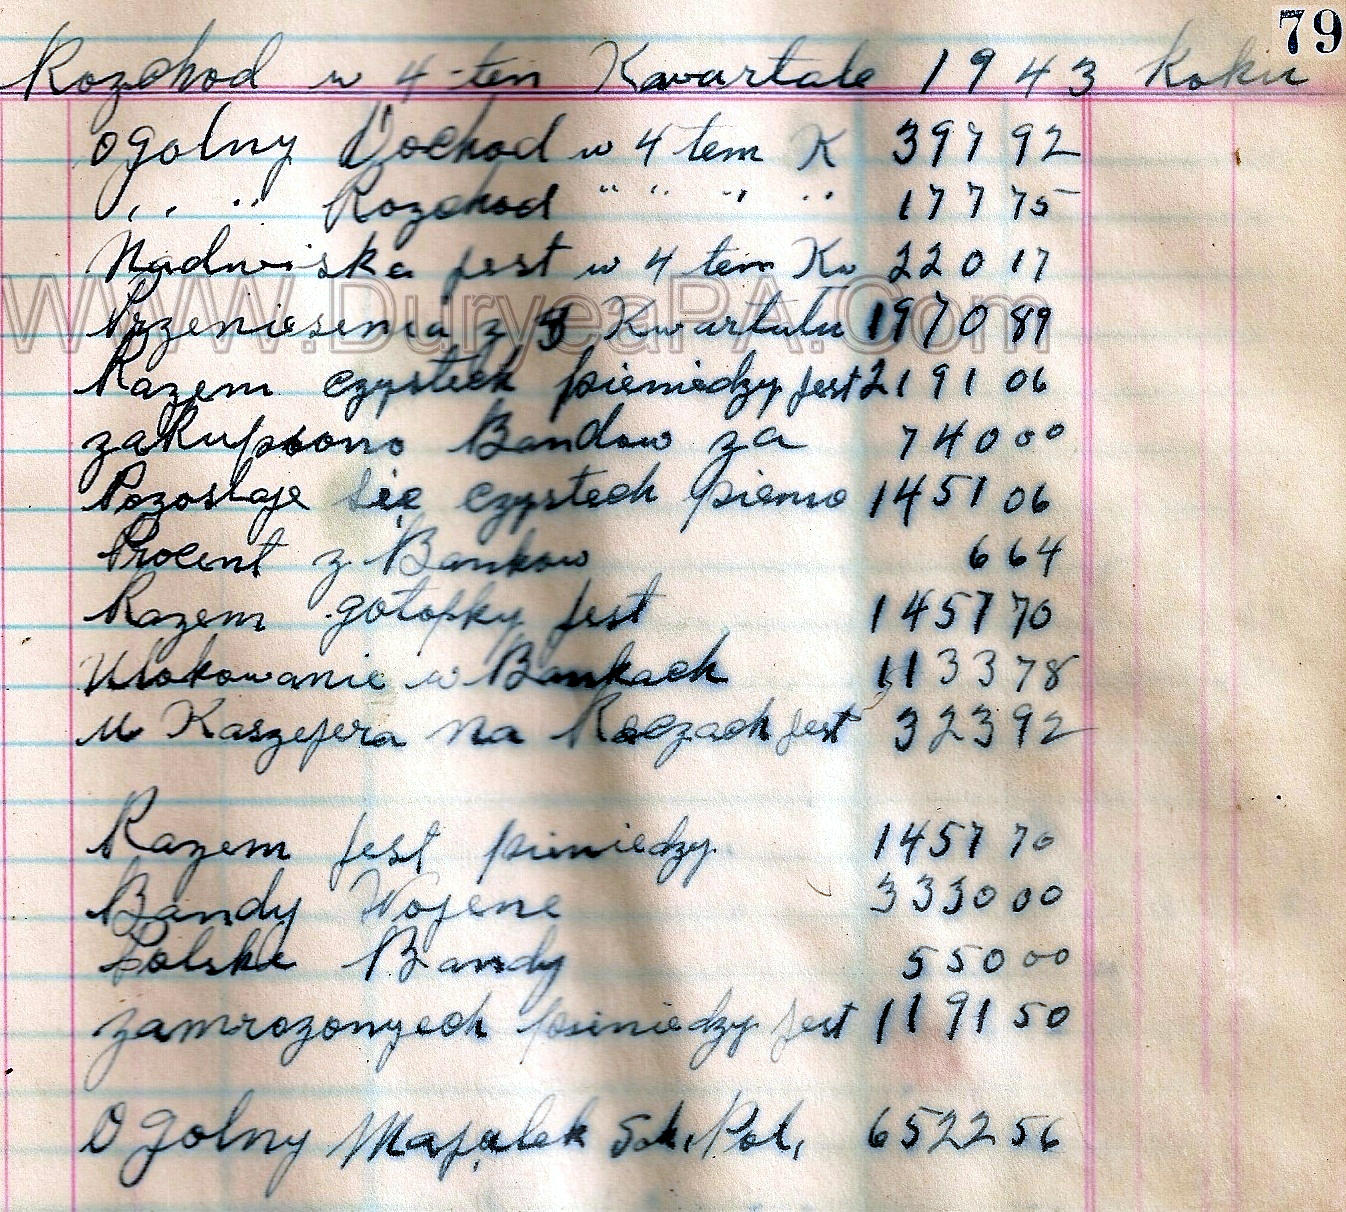 79
Rozchod w 4-tem Kwartale 1943 Roku
Ogolny Dochod w 4 tem K 397 92
,, ,, Rozchod " " " " 177 75
Nadwiska jest w 4 tem Kw 220 17
Przeniesenia z 3 Kwartalu 1970 89
www.DuryeaPA.Com
Razem czystech pieniedzy jest 2191 06
zakupiono Bandow za 740 00
Pozostaje się czystech pienio 1451 06
Procent z Bankow 6 64
Razem gotofky jest 1457 70
Ulokowanie w Bankach 1133 78
U Kaszejera na Reczach jest 323 92
Razem jest piniedzy 1457 70
Bandy Wojene 3330 00
Polske Bandy 550 00
zamrozonyech piniedzy jest 1191 50
Ogolny Majalek Sok. Pol. 6522 56